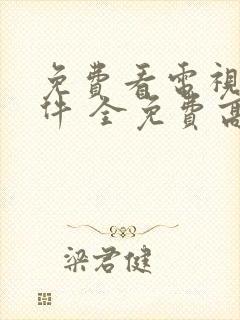 免費看電視
件 全免費高
梁君健